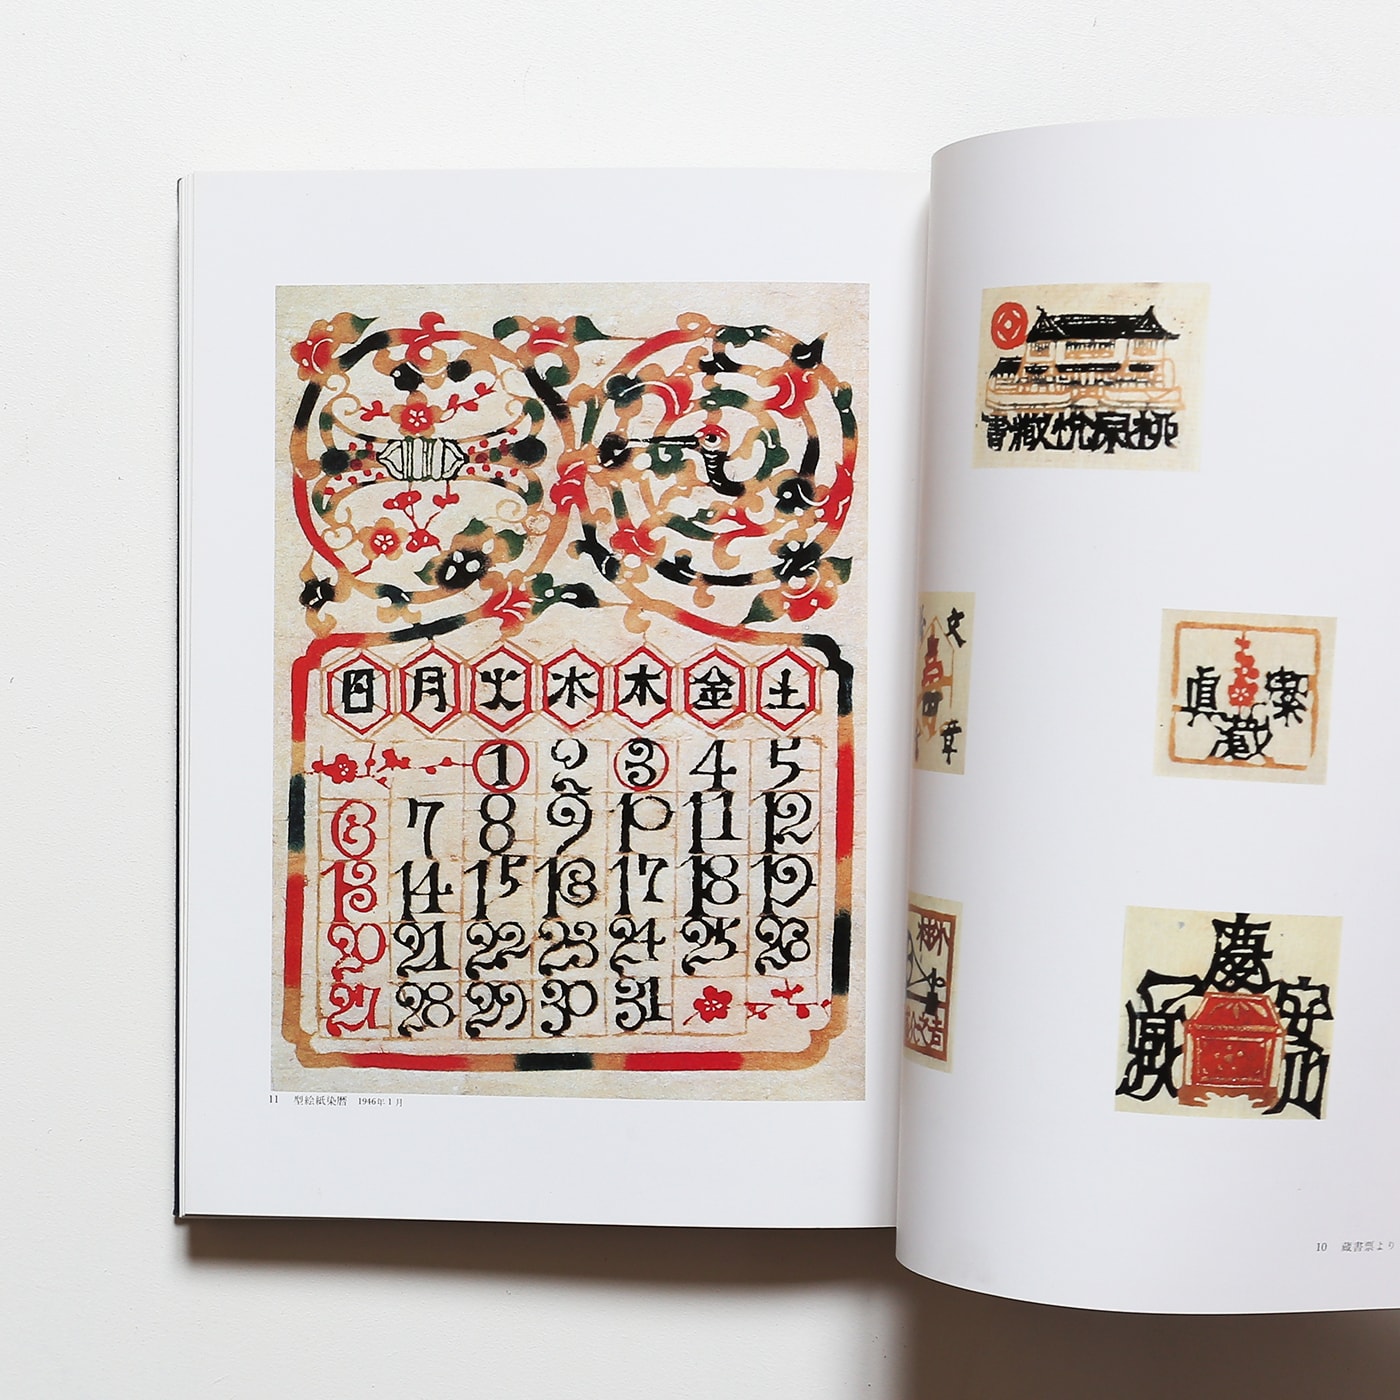 日 月 火 水 木 金 土
1 2 3 4 5
6 7 8 9 10 11 12
13 14 15 16 17 18 19
20 21 22 23 24 25 26
27 28 29 30 31
11 型絵紙染暦 1946年1月
書蔵悦源柳
文
章
眞 蔵
10 蔵書票より